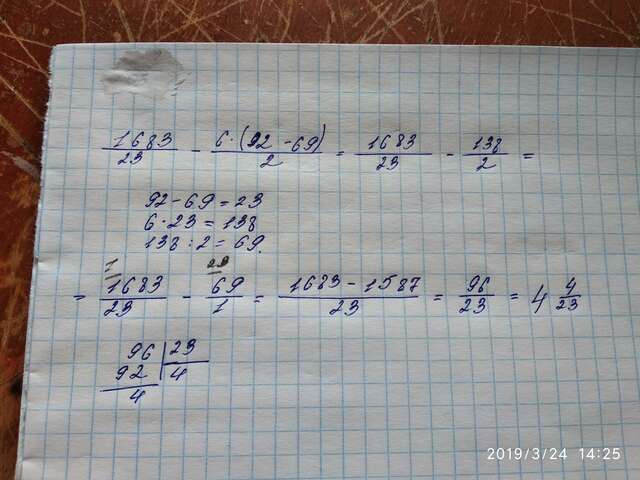 1683/23 - 6·(92-69)/2 = 1683/23 - 138/2 =
92-69=23
6·23=138
138:2=69.
= 1683/23 - 69/1 = 1683-1587/23 = 96/23 = 4 4/23
96 | 23
92 | 4
4
2019/3/24 14:25